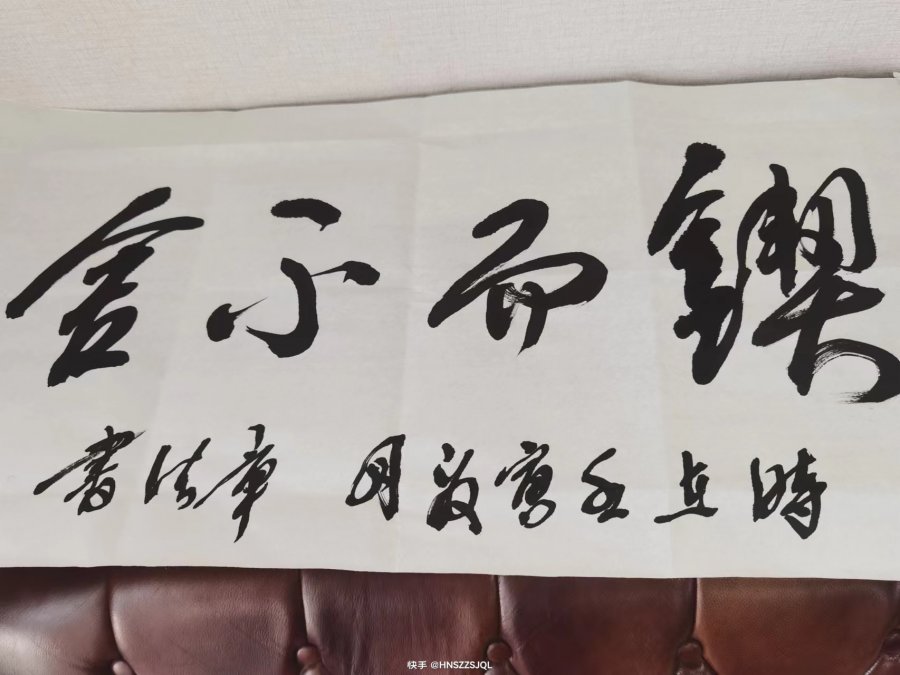 鍥而不舍
時在壬寅夏月 章法書
快手 @HNSZZSJQL